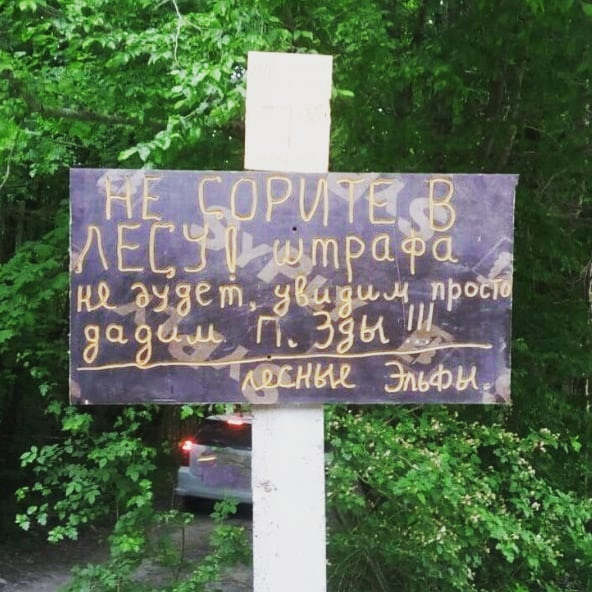 НЕ СОРИТЕ В
ЛЕСУ! штрафа
не будет, увидим просто
дадим П. Зды!!!
лесные Эльфы.